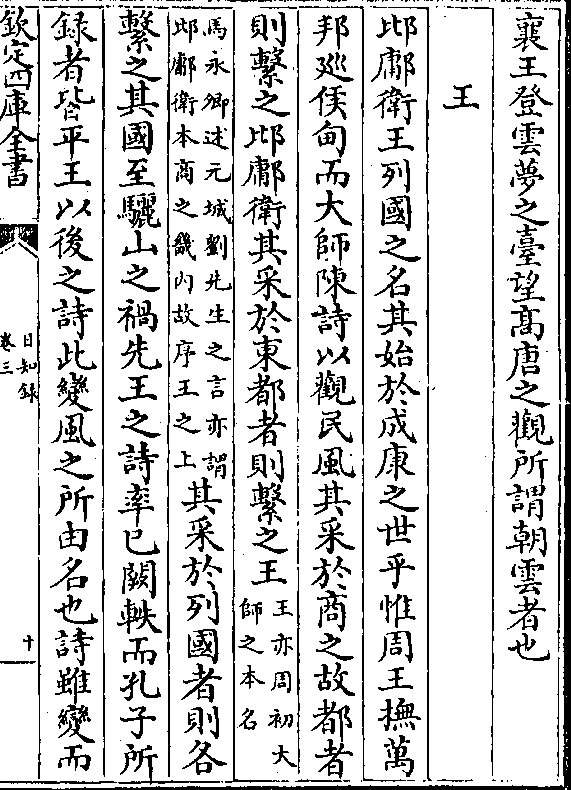 襄王登雲夢之臺望髙唐之觀所謂朝雲者也
王
邶鄘衛王列國之名其始於成康之世乎惟周王撫萬
邦廵侯甸而大師陳詩以觀民風其采於商之故都者
則繫之邶鄘衛其采於東都者則繫之王王亦周初大師之本名
馬永卿述元城劉先生之言亦謂邶鄘衛本商之畿内故序王之上其采於列國者則各
繫之其國至驪山之禍先王之詩率已闕軼而孔子所
録者皆平王以後之詩此變風之所由名也詩雖變而
欽定四庫全書
日知録
卷三
十